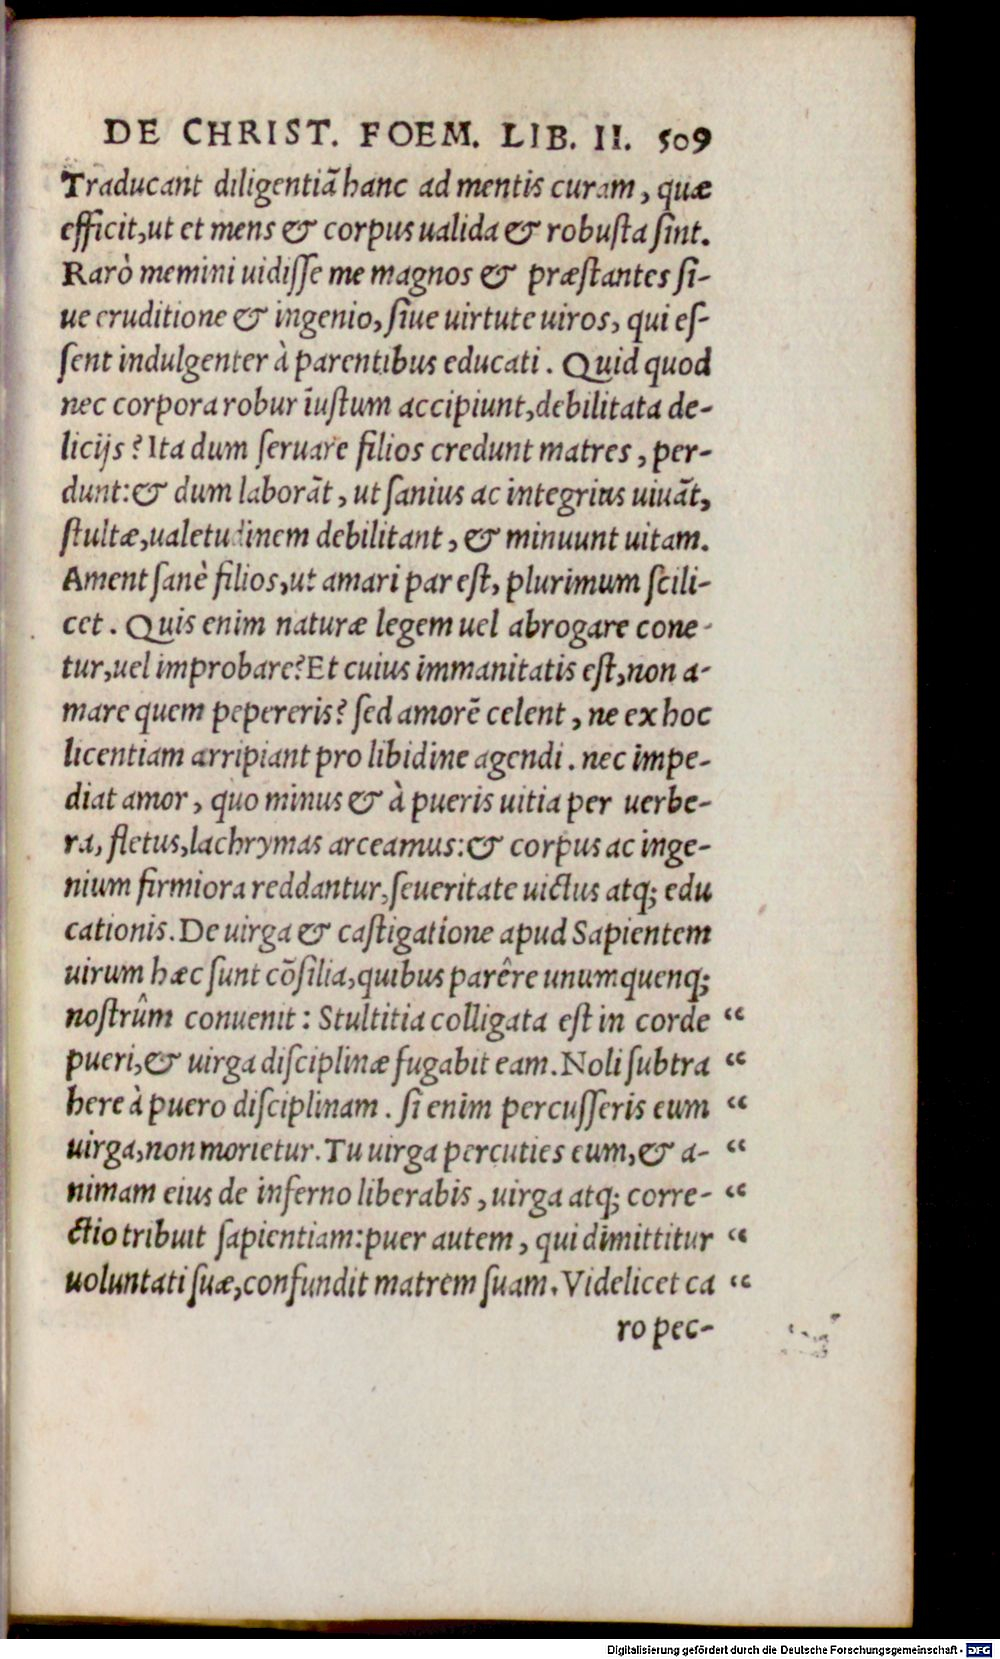 DE CHRIST. FOEM. LIB. II. 509
Traducant diligentiā hanc ad mentis curam, quæ
efficit, ut et mens & corpus ualida & robusta sint.
Rarò memini uidisse me magnos & præstantes si-
ue eruditione & ingenio, siue uirtute uiros, qui es-
sent indulgenter à parentibus educati. Quid quod
nec corpora robur iustum accipiunt, debilitata de-
licijs? Ita dum seruare filios credunt matres, per-
dunt: & dum laborāt, ut sanius ac integrius uiuāt,
stultæ, ualetudinem debilitant, & minuunt uitam.
Ament sanè filios, ut amari par est, plurimum scili-
cet. Quis enim naturæ legem uel abrogare cone-
tur, uel improbare? Et cuius immanitatis est, non a-
mare quem pepereris? sed amorē celent, ne ex hoc
licentiam arripiant pro libidine agendi. nec impe-
diat amor, quo minus & à pueris uitia per uerbe-
ra, fletus, lachrymas arceamus: & corpus ac inge-
nium firmiora reddantur, seueritate uictus atq; edu
cationis. De uirga & castigatione apud Sapientem
uirum hæc sunt cōsilia, quibus parêre unumquenq;
nostrûm conuenit: Stultitia colligata est in corde “
pueri, & uirga disciplinæ fugabit eam. Noli subtra “
here à puero disciplinam. si enim percusseris eum “
uirga, non morietur. Tu uirga percuties eum, & a- “
nimam eius de inferno liberabis, uirga atq; corre- “
ctio tribuit sapientiam: puer autem, qui dimittitur “
uoluntati suæ, confundit matrem suam. Videlicet ca “
ro pec-
Digitalisierung gefördert durch die Deutsche Forschungsgemeinschaft - DFG